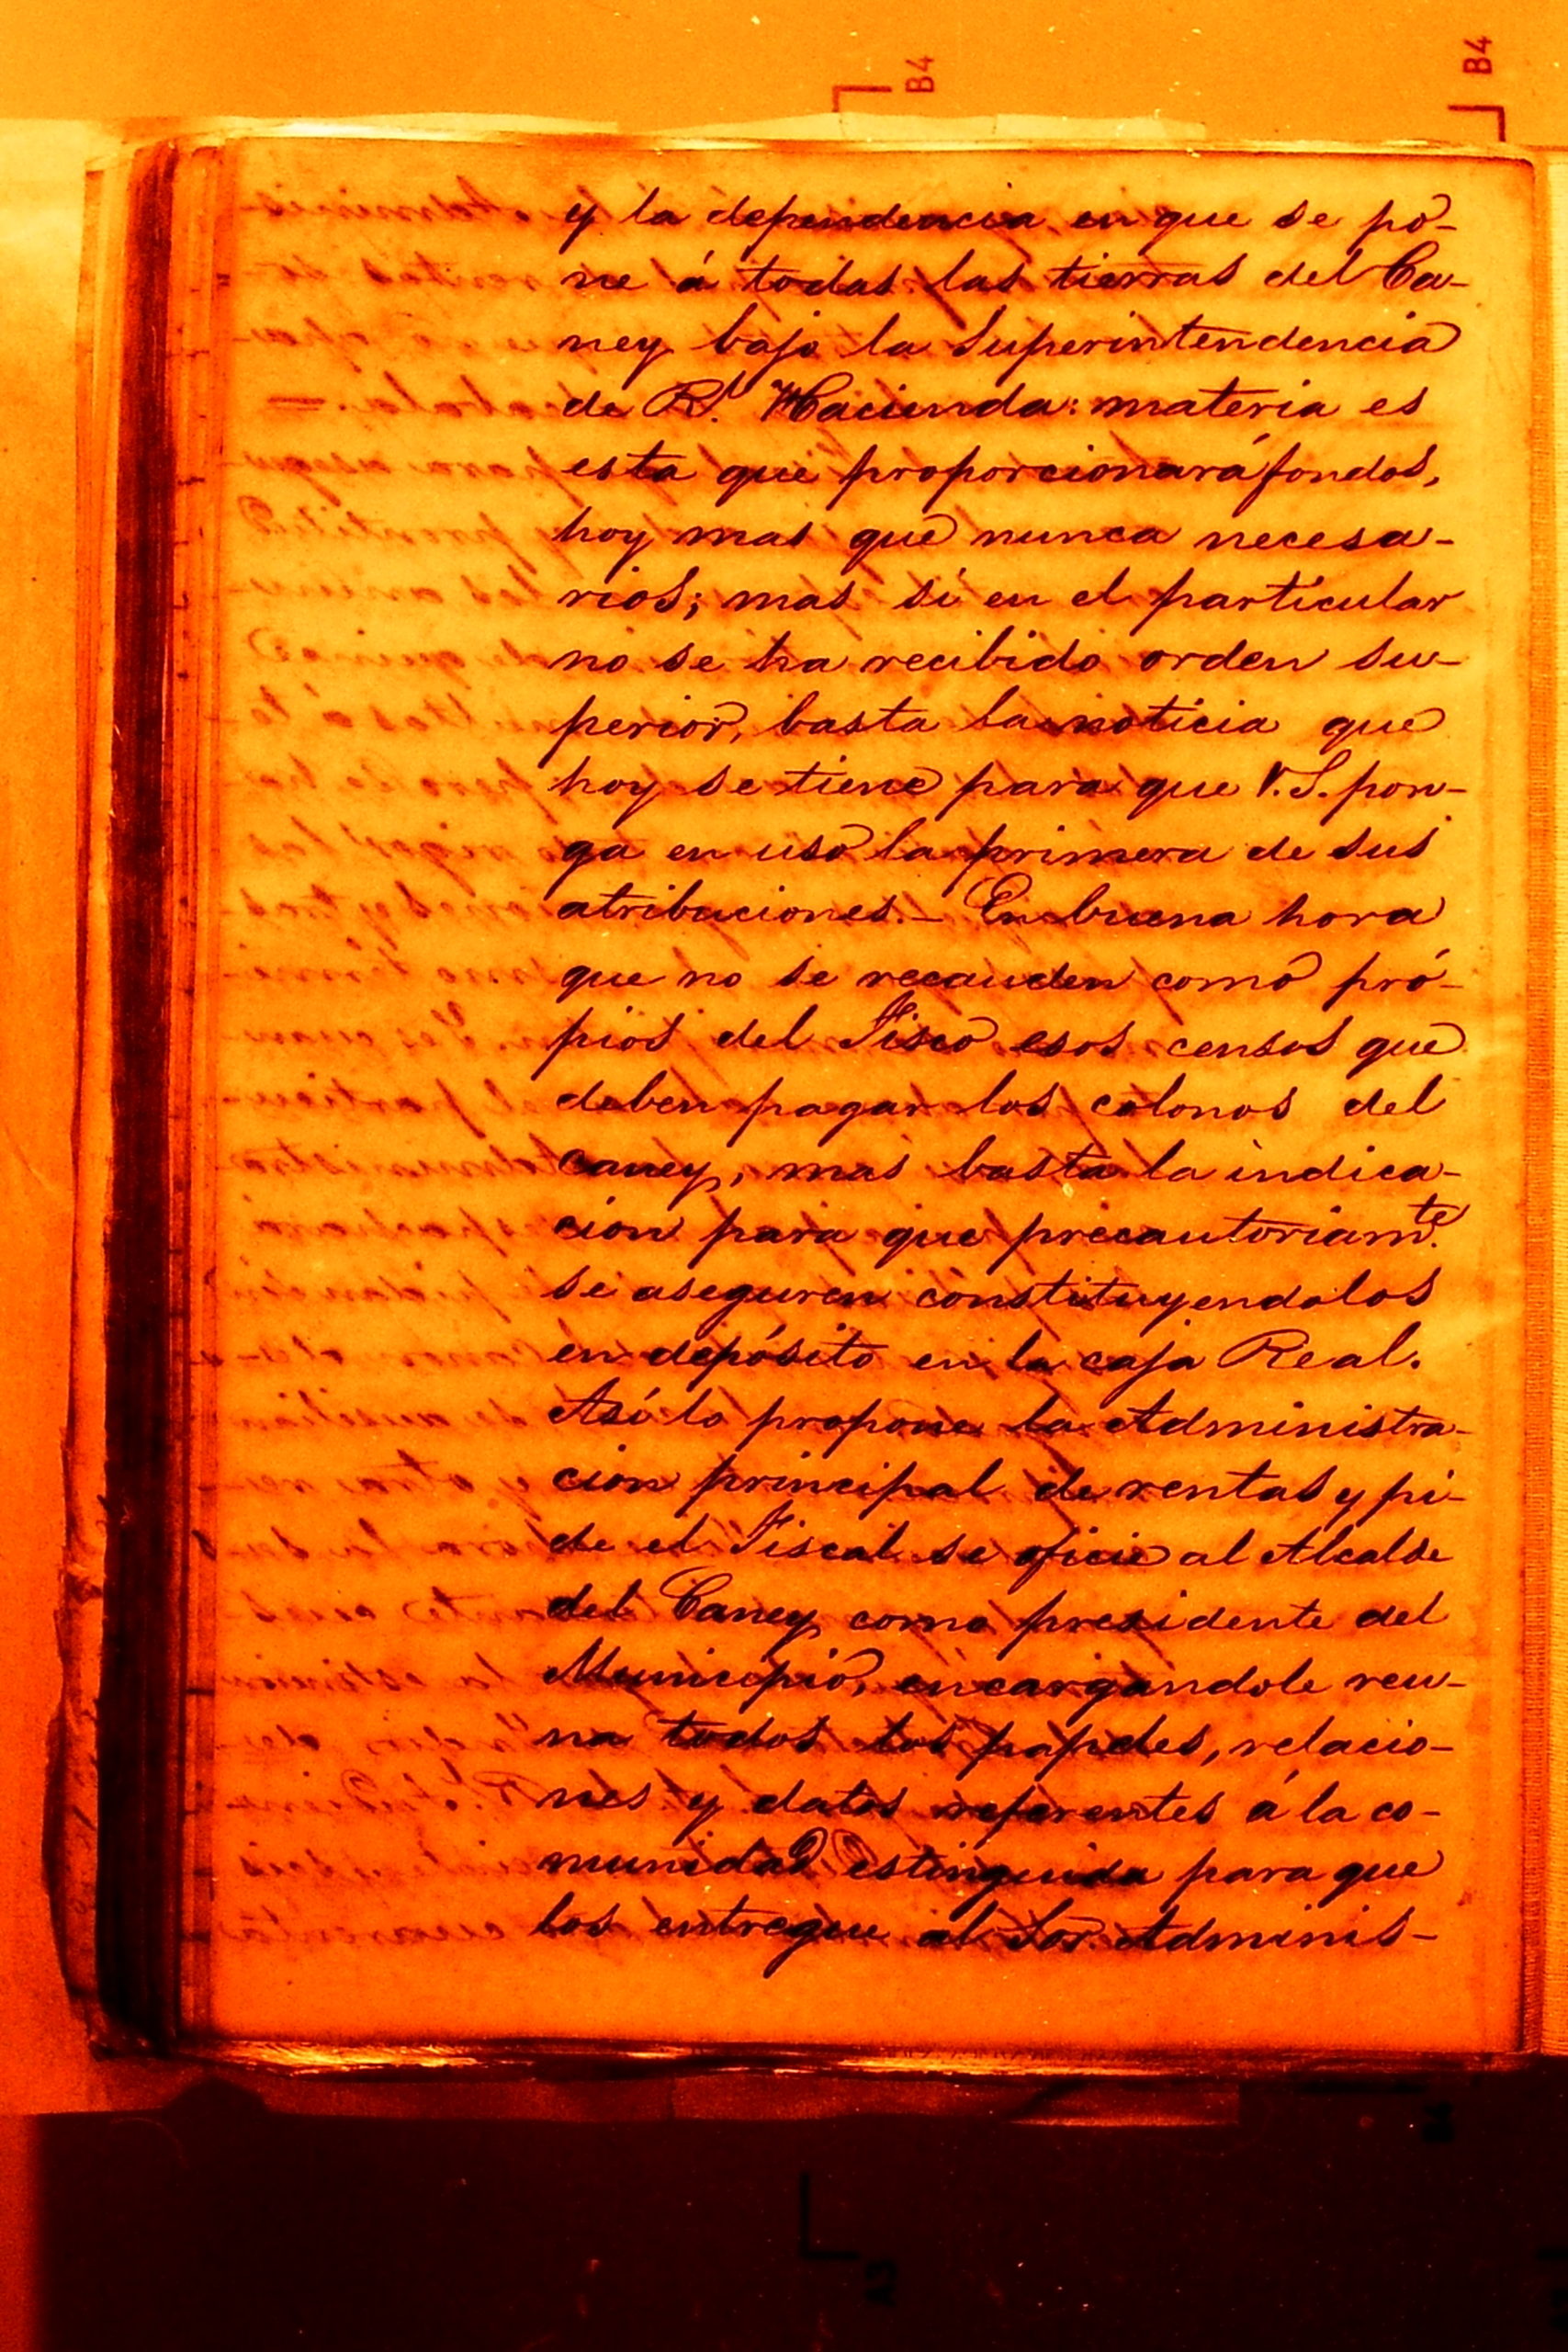 B4
B4
y la dependencia en que se po-
ne á todas las tierras del Ca-
ney bajo la Superintendencia
de Rl. Hacienda: materia es
esta que proporcionará fondos,
hoy mas que nunca necesa-
rios; mas si en el particular
no se ha recibido orden su-
perior, basta la noticia que
hoy se tiene para que V.S. pon-
ga en uso la primera de sus
atribuciones.- En buena hora
que no se recauden como pró-
pios del Fisco esos censos que
deben pagar los colonos del
caney, mas basta la indica-
cion para que precautoriamte.
se aseguren constituyendolos
en depósito en la caja Real.
Así lo propone la Administra-
cion principal de rentas y pi-
de el Fiscal se oficie al Alcalde
del Caney como presidente del
Municipio, encargandole reu-
na todos los papeles, relacio-
nes y datos referentes á la co-
munidad estinguida para que
los entregue al Sor. Adminis-
A3